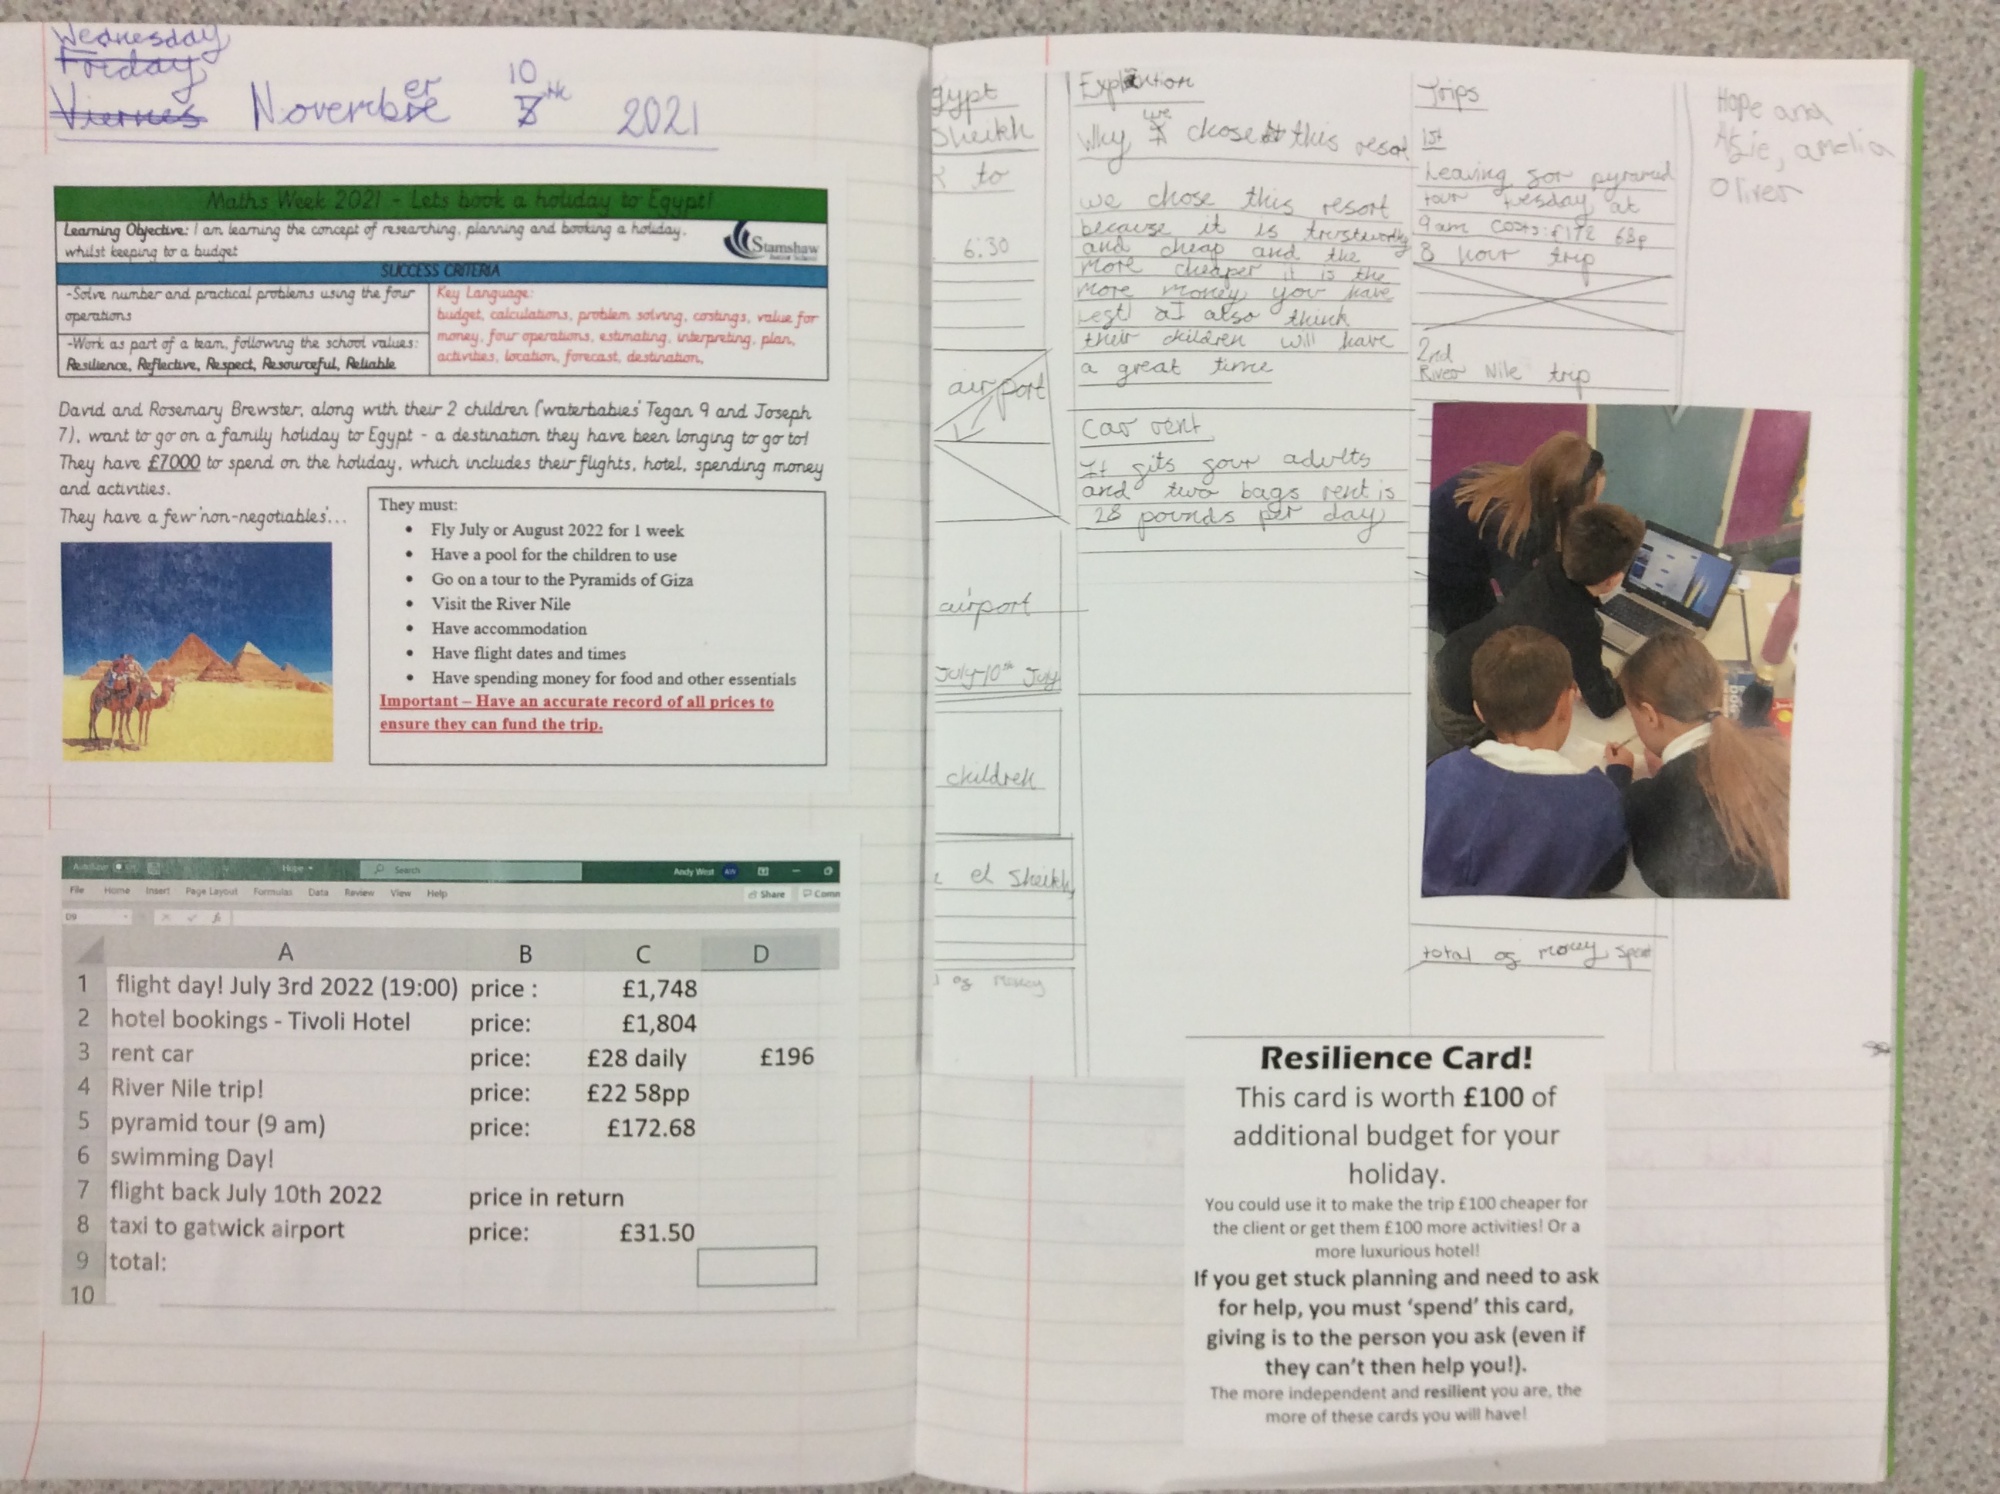 Wednesday
Friday
Viernes November 10 th 2021
Maths Week 2021 - Lets book a holiday to Egypt!
Learning Objective: I am learning the concept of researching, planning and booking a holiday,
whilst keeping to a budget
Stamshaw
Junior School
SUCCESS CRITERIA
-Solve number and practical problems using the four
operations
-Work as part of a team, following the school values:
Resilience, Reflective, Respect, Resourceful, Reliable
Key Language:
budget, calculations, problem solving, costings, value for
money, four operations, estimating, interpreting, plan,
activities, location, forecast, destination,
David and Rosemary Brewster, along with their 2 children ('waterbabies' Tegan 9 and Joseph
7), want to go on a family holiday to Egypt - a destination they have been longing to go to!
They have £7000 to spend on the holiday, which includes their flights, hotel, spending money
and activities.
They have a few 'non-negotiables'...
They must:
• Fly July or August 2022 for 1 week
• Have a pool for the children to use
• Go on a tour to the Pyramids of Giza
• Visit the River Nile
• Have accommodation
• Have flight dates and times
• Have spending money for food and other essentials
Important – Have an accurate record of all prices to
ensure they can fund the trip.
AutoSave
Hope
Search
Andy West AW
File Home Insert Page Layout Formulas Data Review View Help
Share Comm
D9 fx
A B C D
1 flight day! July 3rd 2022 (19:00) price : £1,748
2 hotel bookings - Tivoli Hotel price: £1,804
3 rent car price: £28 daily £196
4 River Nile trip! price: £22 58pp
5 pyramid tour (9 am) price: £172.68
6 swimming Day!
7 flight back July 10th 2022 price in return
8 taxi to gatwick airport price: £31.50
9 total:
10
gypt
Sheikh
to
6:30
airport
airport
July-10th July
children
el Sheikh
of money
Explantion
Why we chose this resort
we chose this resort
because it is trustworthy
and cheap and the
more cheaper it is the
more money you have
left I also think
their children will have
a great time
Car rent
It fits four adults
and two bags rent is
28 pounds per day
Trips
1st
Leaving for pyramid
tour tuesday at
9am costs: £172 68p
8 hour trip
2nd
River Nile trip
total of money spent
Hope and
amelia
Oliver
Resilience Card!
This card is worth £100 of
additional budget for your
holiday.
You could use it to make the trip £100 cheaper for
the client or get them £100 more activities! Or a
more luxurious hotel!
If you get stuck planning and need to ask
for help, you must 'spend' this card,
giving is to the person you ask (even if
they can't then help you!).
The more independent and resilient you are, the
more of these cards you will have!